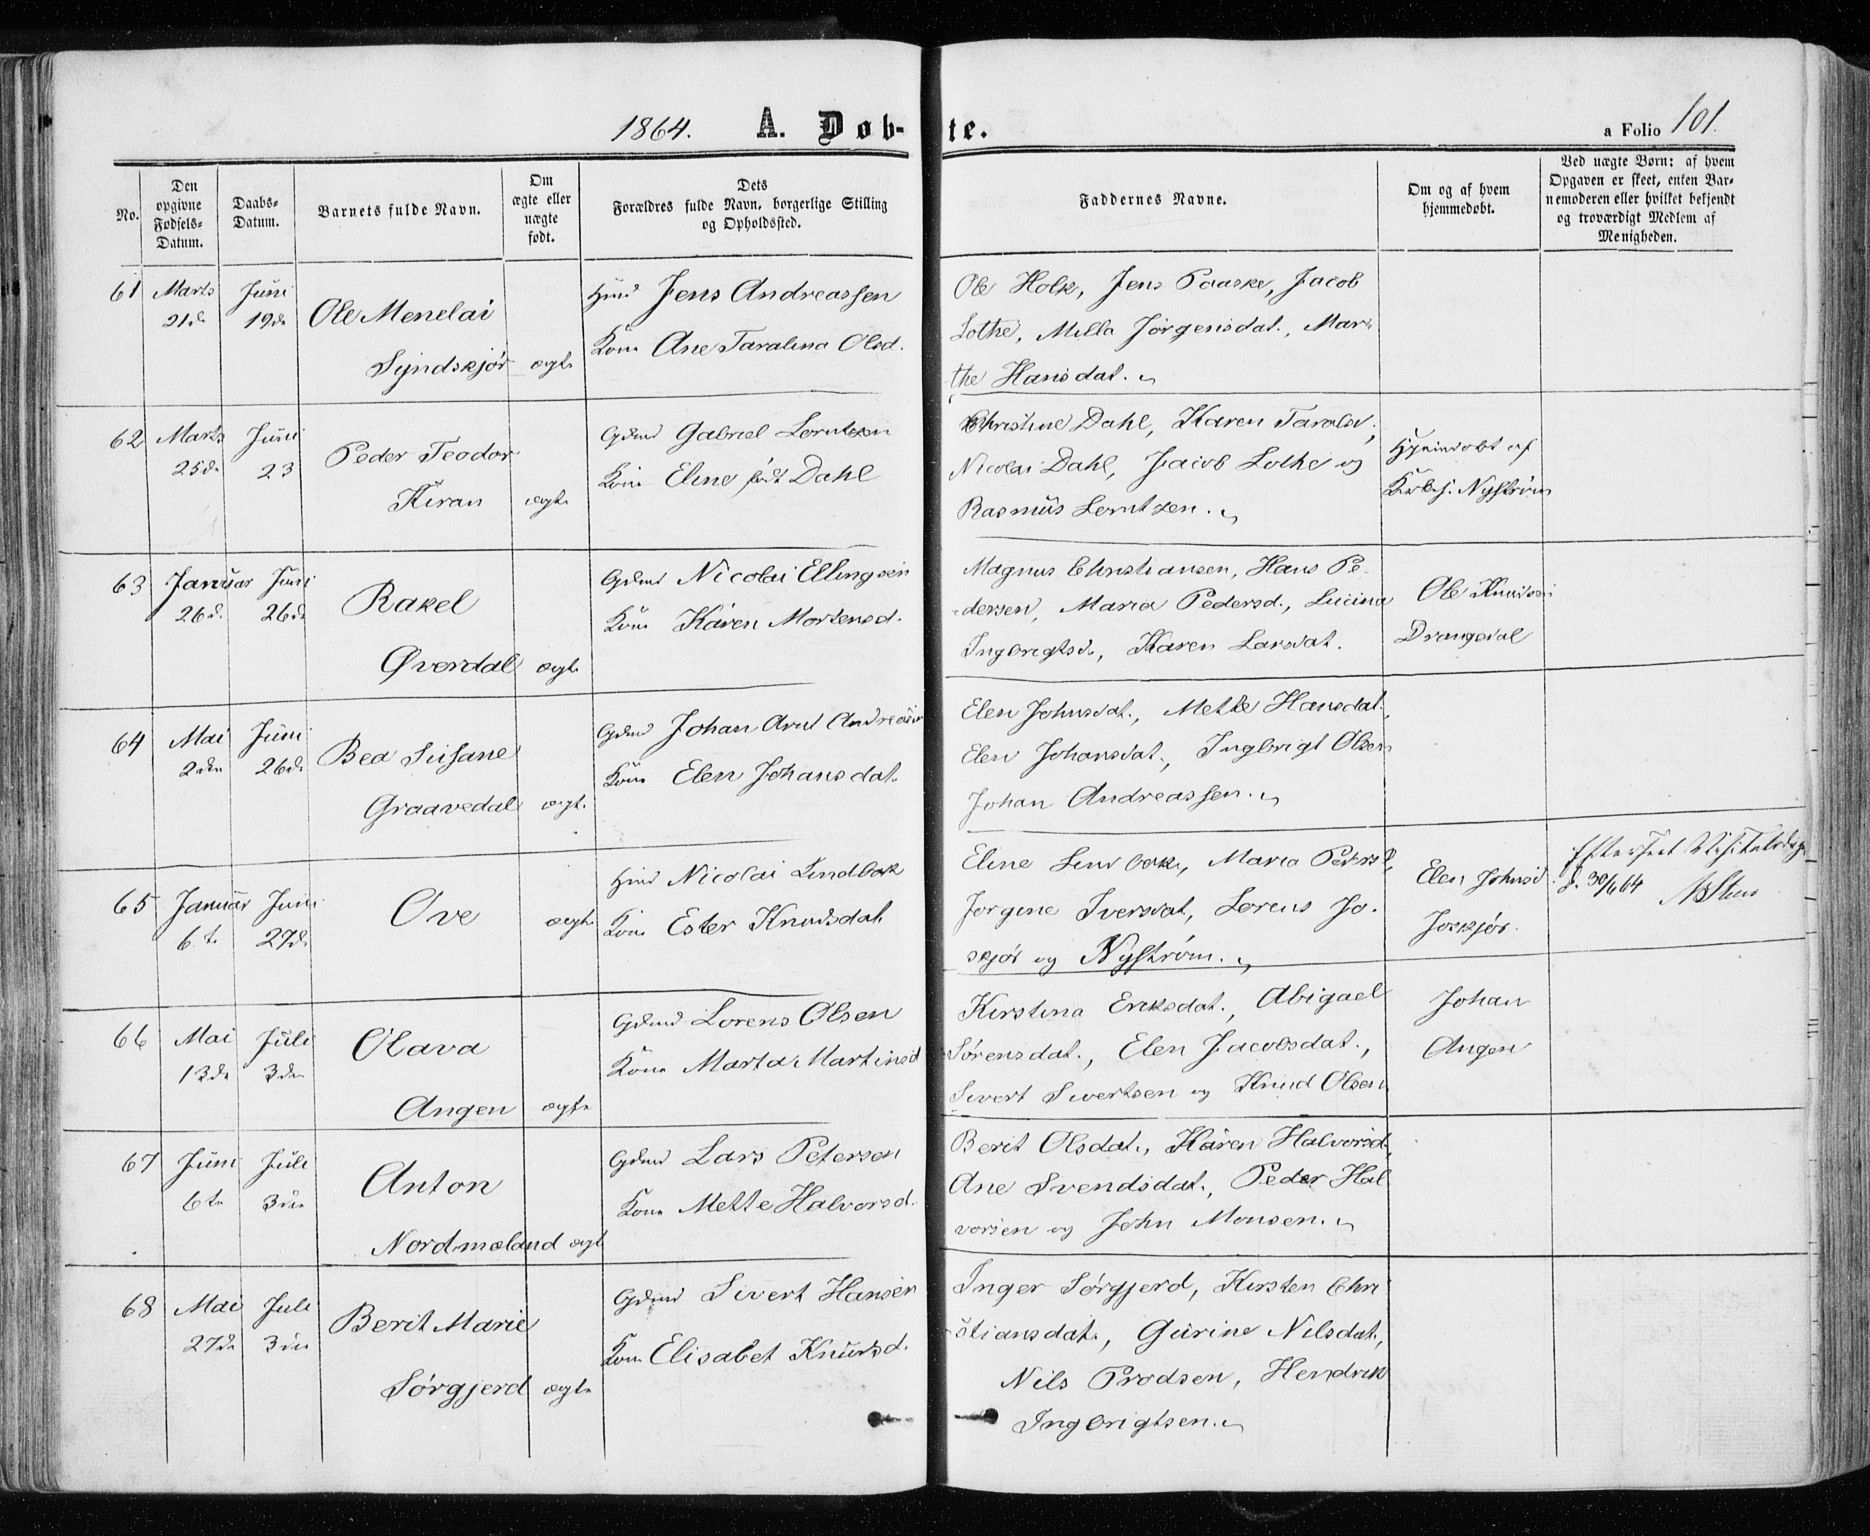 1864. A. Døb-te. a Folio 101.
No.
Den opgivne Fødsels-Datum.
Daabs-Datum.
Barnets fulde Navn.
Om ægte eller uægte født.
Dets Forældres fulde Navn, borgerlige Stilling og Opholdssted.
Faddernes Navne.
Om og af hvem hjemmedøbt.
Ved uægte Børn: af hvem Opgaven er skeet, enten Barnemoderen eller hvilket bekjendt og troværdigt Medlem af Menigheden.
61 Marts Juni
21de 19de
Ole Menelai
Syndskjør ægte
Huusd Jens Andreassen
Kone Ane Taralina Olsd.
Ole Holk, Jens Paaske, Jacob
Lothe, Milla Jørgensdat., Mar-
the Hansdat.
62 Marts Juni
25de 23
Peder Teodor
Kiran ægte
Gdmd Gabriel Lorntzen
Kone Eline født Dahl
Christine Dahl, Karen Tarald.,
Nicolai Dahl, Jacob Lothe og
Rasmus Lorntzen.
Hjemdøbt af
Kirkes. Nystrøm
63 Januar Juni
26d. 26de
Rakel
Øverdal ægte
Gdmd Nicolai Ellingsen
Kone Karen Mortensd.
Magnus Christiansen, Hans Pe-
dersen, Maria Pedersd., Lucina
Ingbrigtsd., Karen Larsdat.
Ole Knudsen
Drangsdal
64 Mai Juni
2den 26de
Bea Susane
Graavedal ægte
Gdmd Johan Arnt Andreasen
Kone Elen Johansdat.
Elen Johnsdat., Mette Hansdat.,
Elen Johansdat., Ingbrigt Olsen
Johan Andreassen.
65 Januar Juni
6te 27de
Ove ægte
Huusd Nicolai Lindbak
Kone Ester Knudsdat.
Eline Lindbak, Maria Petersd.,
Jorgine Iversdat, Lorens Jo-
skjør og Nystrøm.
Elen Johnsd.
Joskjør.
Efterseet
d. 30/6 64
66 Mai Juli
13de 3die
Olava
Angen ægte
Gdmd Lorens Olsen
Kone Marta Martinsd
Kirstina Eriksdat., Abigael
Sørensdat., Elen Jacobsdat.,
Sivert Sivertsen og Knud Olsen
Johan
Angen
67 Juni Juli
6te 3die
Anton
Nordmeland ægte
Gdmd Lars Petersen
Kone Mette Halvorsd.
Berit Olsdat., Karen Halvorsd.,
Ane Svendsdat., Peder Hal
vorsen og John Monsen.
68 Mai Juli
27de 3die
Berit Marie
Sørgjerd ægte
Gdmd Sivert Hansen
Kone Elisabet Knudsd.
Inger Sørgjerd, Kirsten Chri
stiansdat., Gurine Nilsdat.,
Nils Prodsen, Hendrik
Ingbrigtsen.